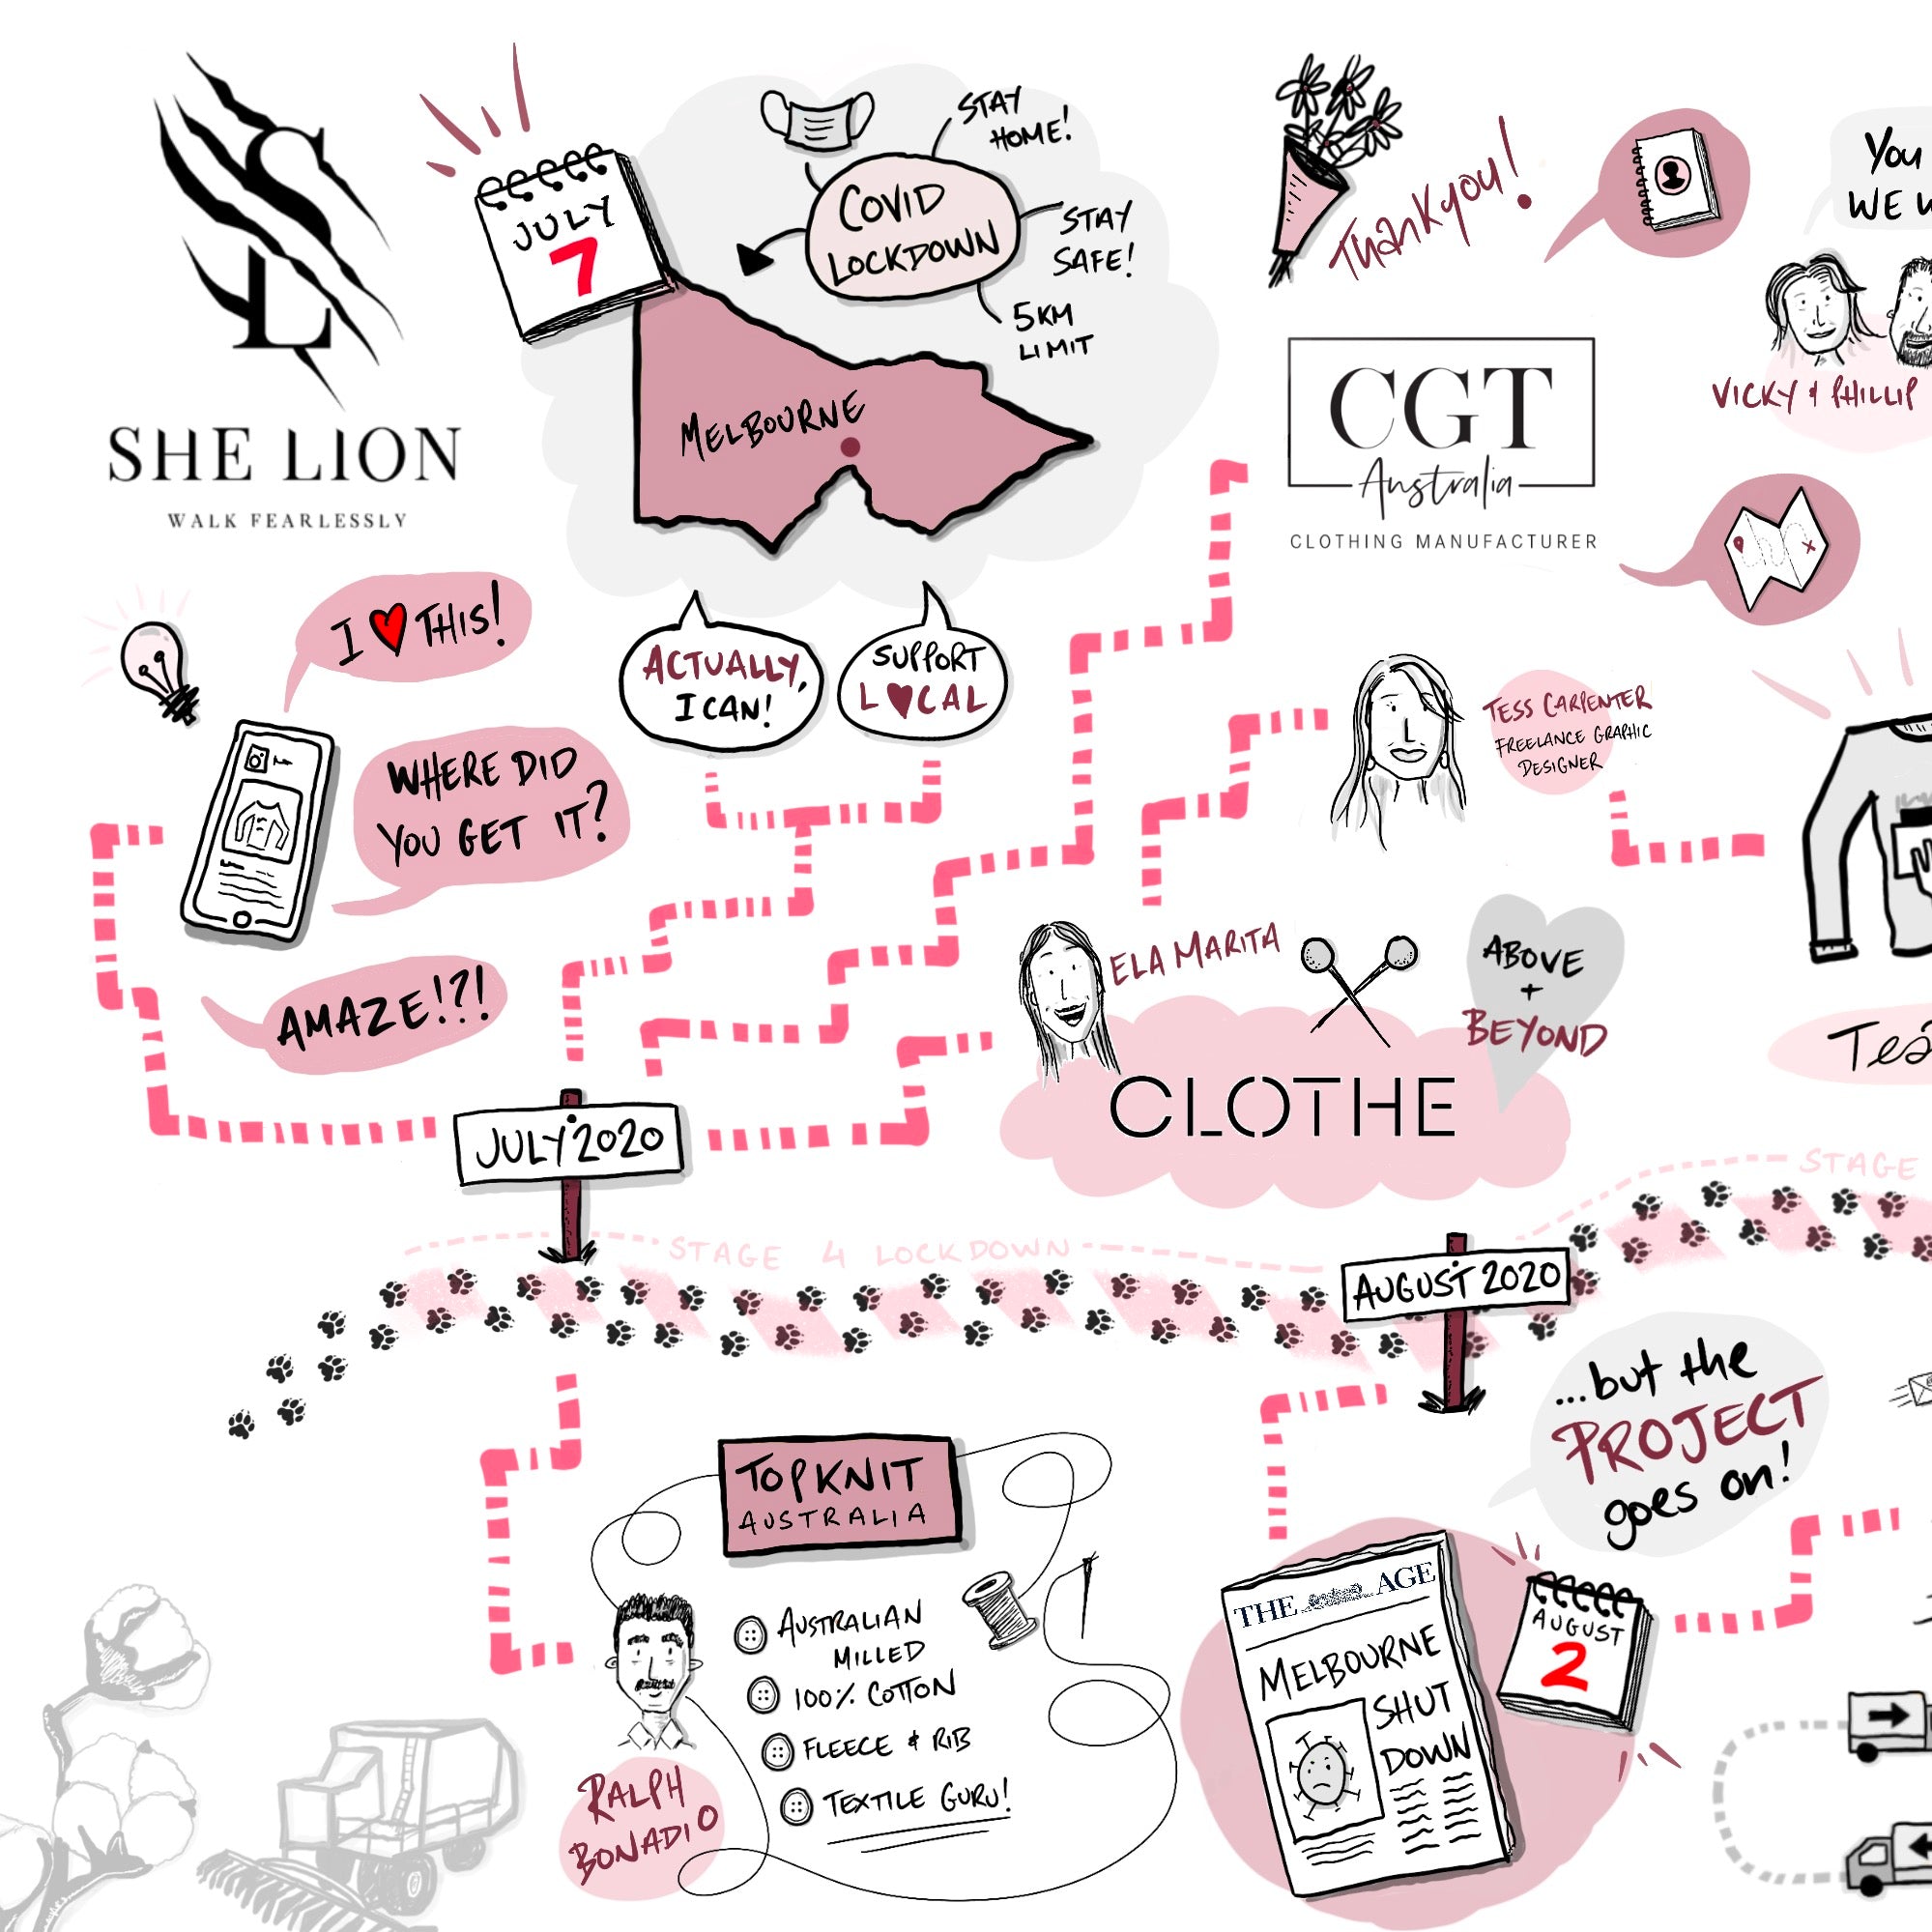 SL
SHE LION
WALK FEARLESSLY
JULY
7
COVID
LOCKDOWN
STAY
HOME!
STAY
SAFE!
5KM
LIMIT
MELBOURNE
ThankYou!
CGT
Australia
CLOTHING MANUFACTURER
You
WE
VICKY & PHILLIP
I ♥ THIS!
WHERE DID
YOU GET IT?
AMAZE!?!
ACTUALLY,
I CAN!
SUPPORT
L♥CAL
TESS CARPENTER
FREELANCE GRAPHIC
DESIGNER
ELA MARITA
ABOVE
+
BEYOND
CLOTHE
JULY 2020
STAGE 4 LOCKDOWN
STAGE
AUGUST 2020
...but the
PROJECT
goes on!
TOPKNIT
AUSTRALIA
AUSTRALIAN
MILLED
100% COTTON
FLEECE & RIB
TEXTILE GURU!
RALPH
BONADIO
THE AGE
MELBOURNE
SHUT
DOWN
AUGUST
2